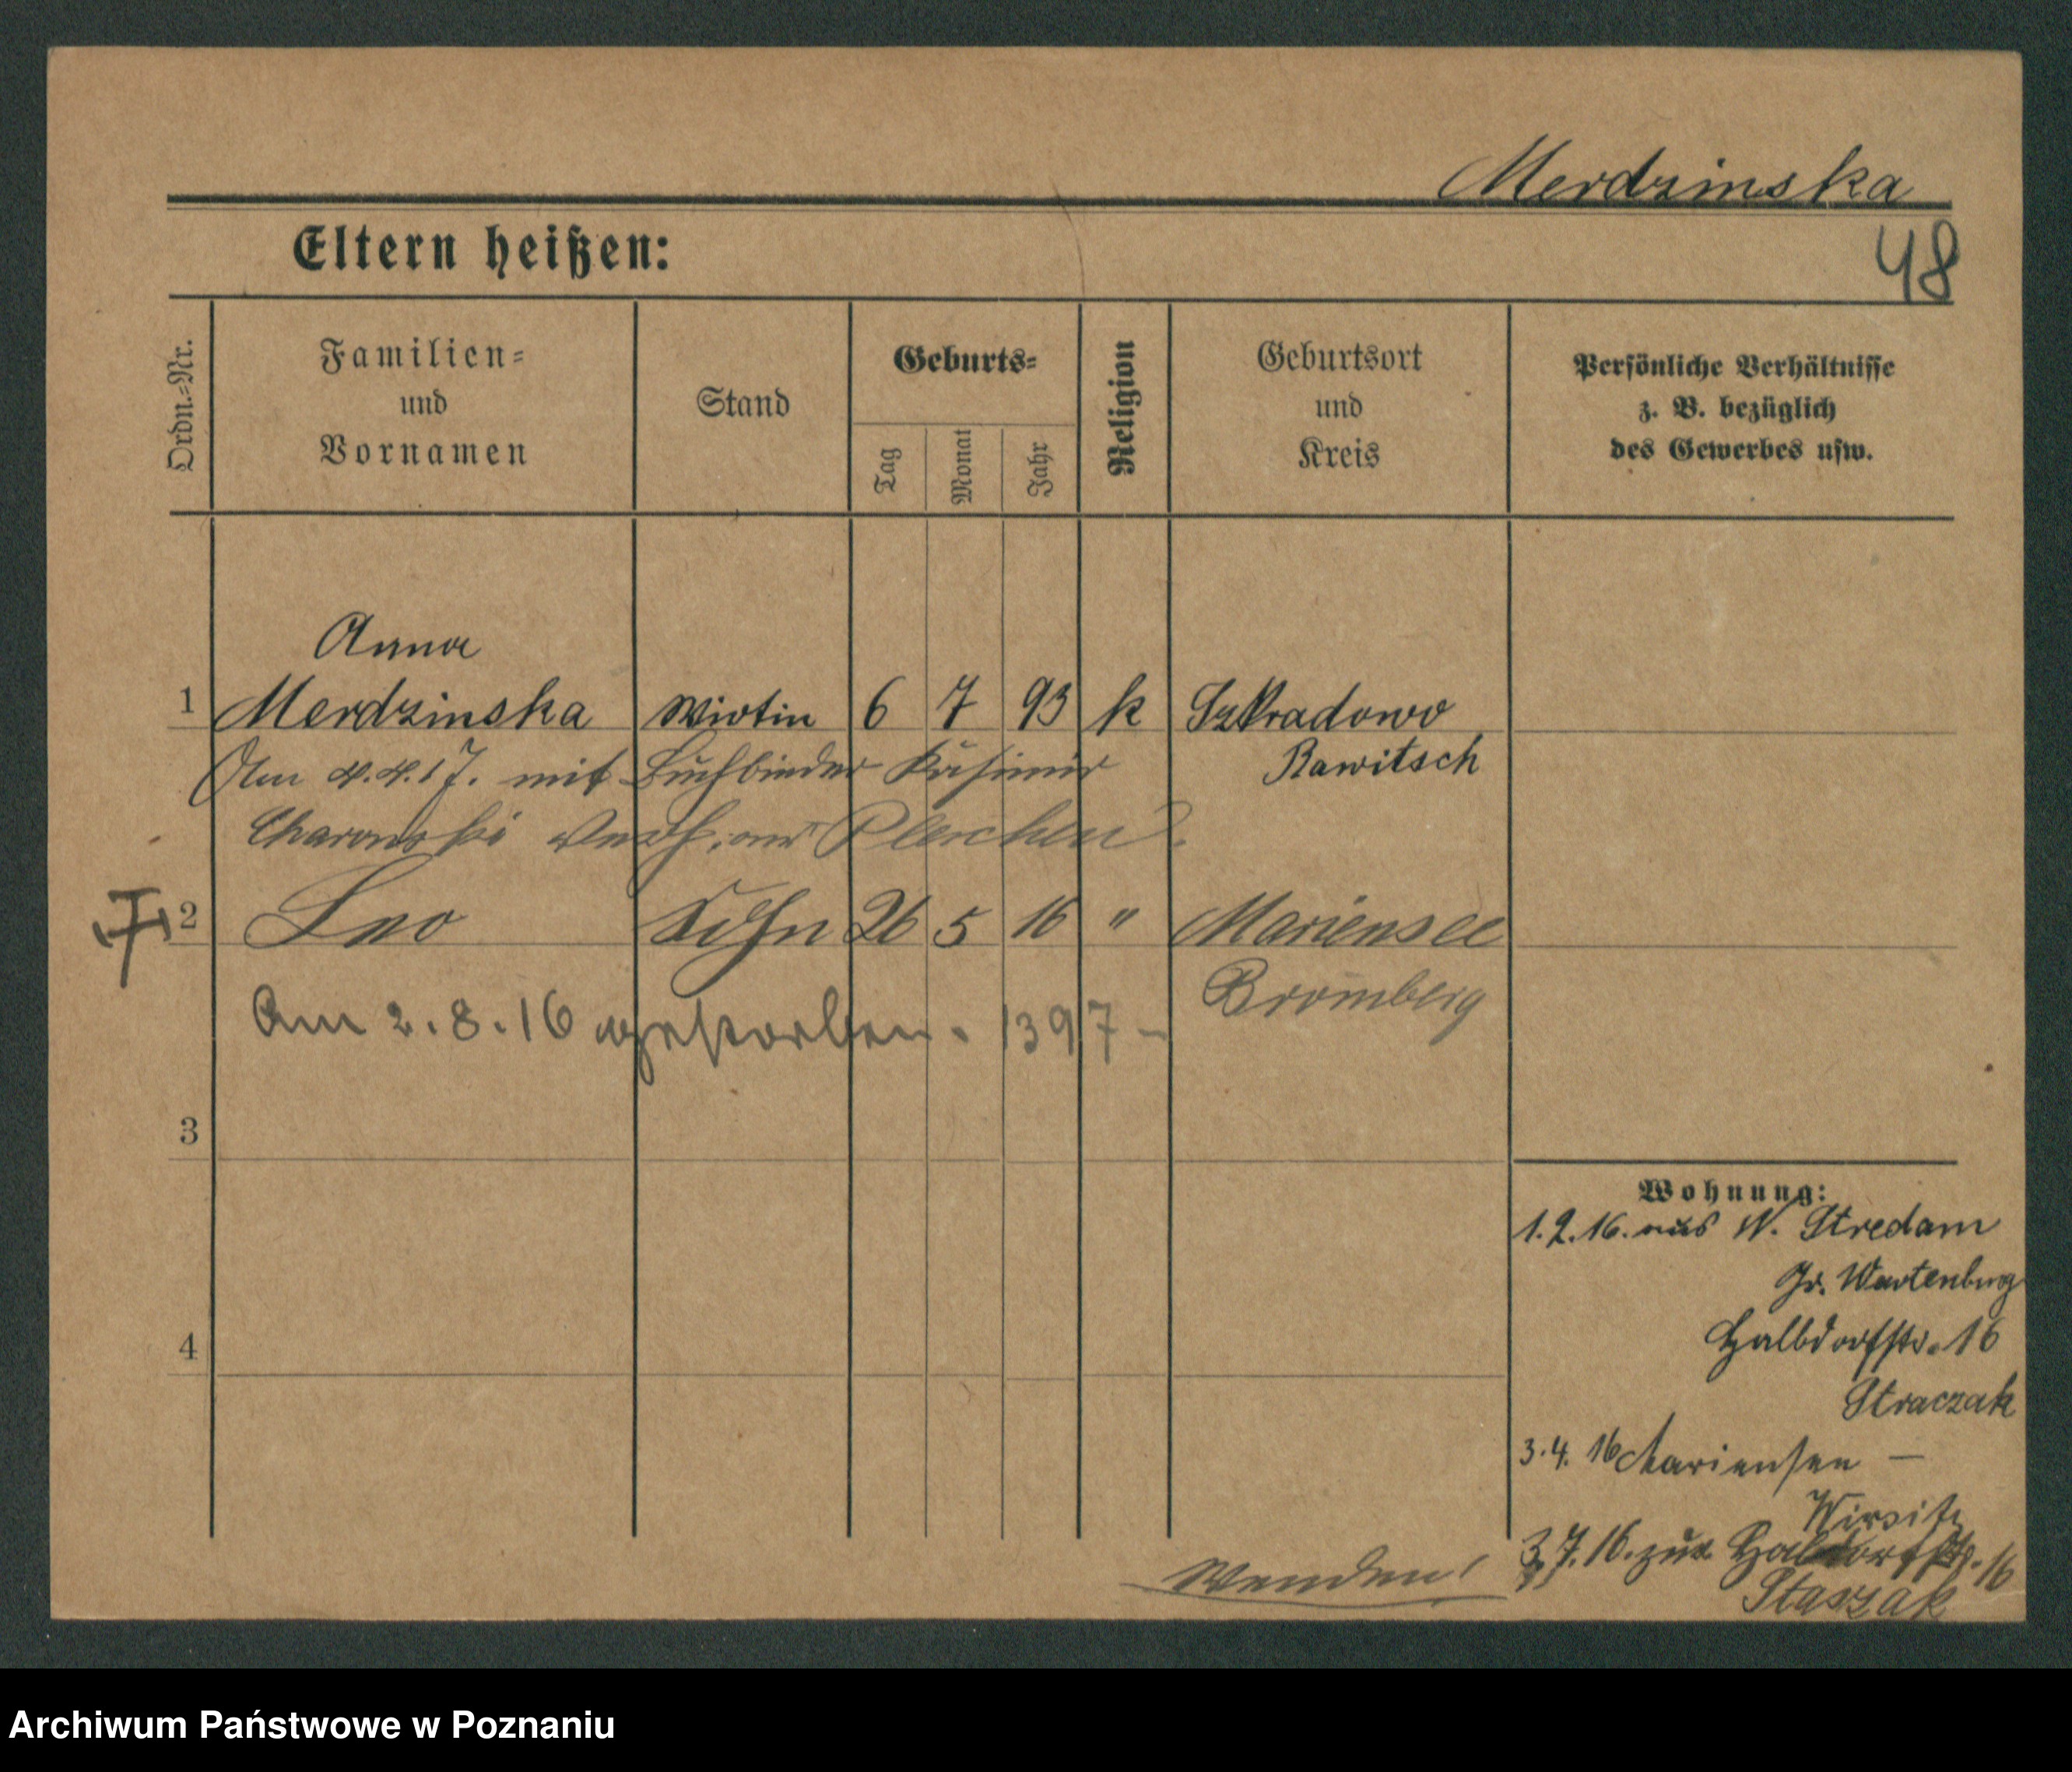 Merdzinska
Eltern heißen:
48
Ordn.=Nr.
Familien=
und
Vornamen
Stand
Geburts=
Tag
Monat
Jahr
Religion
Geburtsort
und
Kreis
Persönliche Verhältnisse
z. B. bezüglich
des Gewerbes usw.
Anna
1 Merdzinska Wirtin 6 7 93 k Szkradowo
Rawitsch
Am 4.4.17. mit Buchbinder Kasimir
Charonski verh. aus Pleschen.
2 Leo Sohn 26 5 16 " Mariensee
Bromberg
Am 2.8.16 gestorben. 1397 –
3
4
Wohnung:
1.2.16. aus N. Stredam
Gr. Wartenburg
Halbdorfstr. 16
Straczak
3.4. 16 Mariensee –
Wirsitz
3.7.16. zur. Halbdorfstr. 16
Staszak
Wenden!
Archiwum Państwowe w Poznaniu